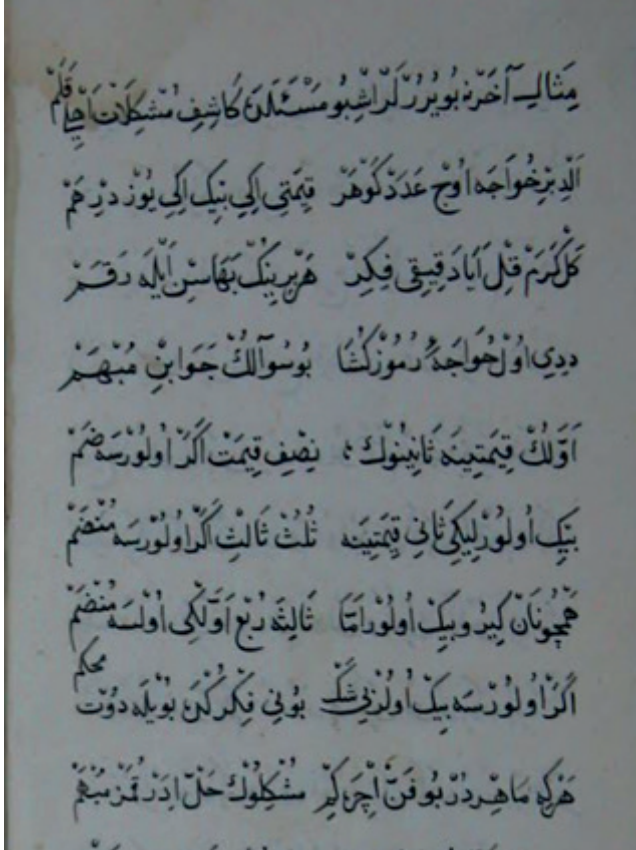 مِثَالِ آخَرْ بُويُرُرْلَرْ اُشْبُو مَسْئَلَهٔ كَاشِفِ مُشْكِلَاتْ اَهْلِ قَلَمْ
اَلْدِ بِرْ خُوَاجَه اُوچْ عَدَدْ كَوْهَرْ قِيمَتِي اِكِي بِيكْ اِكِي يُوزْ دِرْهَمْ
كَلْ كَرَمْ قِلْ اَيَا دَقِيقِي فِكِرْ هَرْ بِرِينُكْ بَهَاسِنْ اَيْلَه رَقَمْ
دِدِي اُولْ خُوَاجَهٔ رُمُوزْ كُشَا بُو سُوآلُكْ جَوَابِنِ مُبْهَمْ
اَوَّلُكْ قِيمَتِينَه ثَانِينُوكْ نِصْفِ قِيمَتْ اَكَرْ اُولُورْسَه ضَمْ
بِيكْ اُولُورْ لِيكِي ثَانِي قِيمَتِينَه ثُلُثْ ثَالِثْ اَكَرْ اُولُورْسَه مُنْضَمْ
هَمْچُونَانْ كِيرُو بِيكْ اُولُورْ اَمَّا ثَالِثَه رُبْعِ اَوَّلْكِي اُولْسَه مُنْضَمْ
اَكَرْ اُولُورْسَه بِيكْ اُولُرْ بِي شَكْ بُونِي فِكْر بُويْلَه دُوتْ محكم
هَرْ كِه مَاهِرْدُرْ بُو فَنّ اِچْرَه مُشْكِلُوكْ حَلّ اِدَرْ مُبْهَمْ